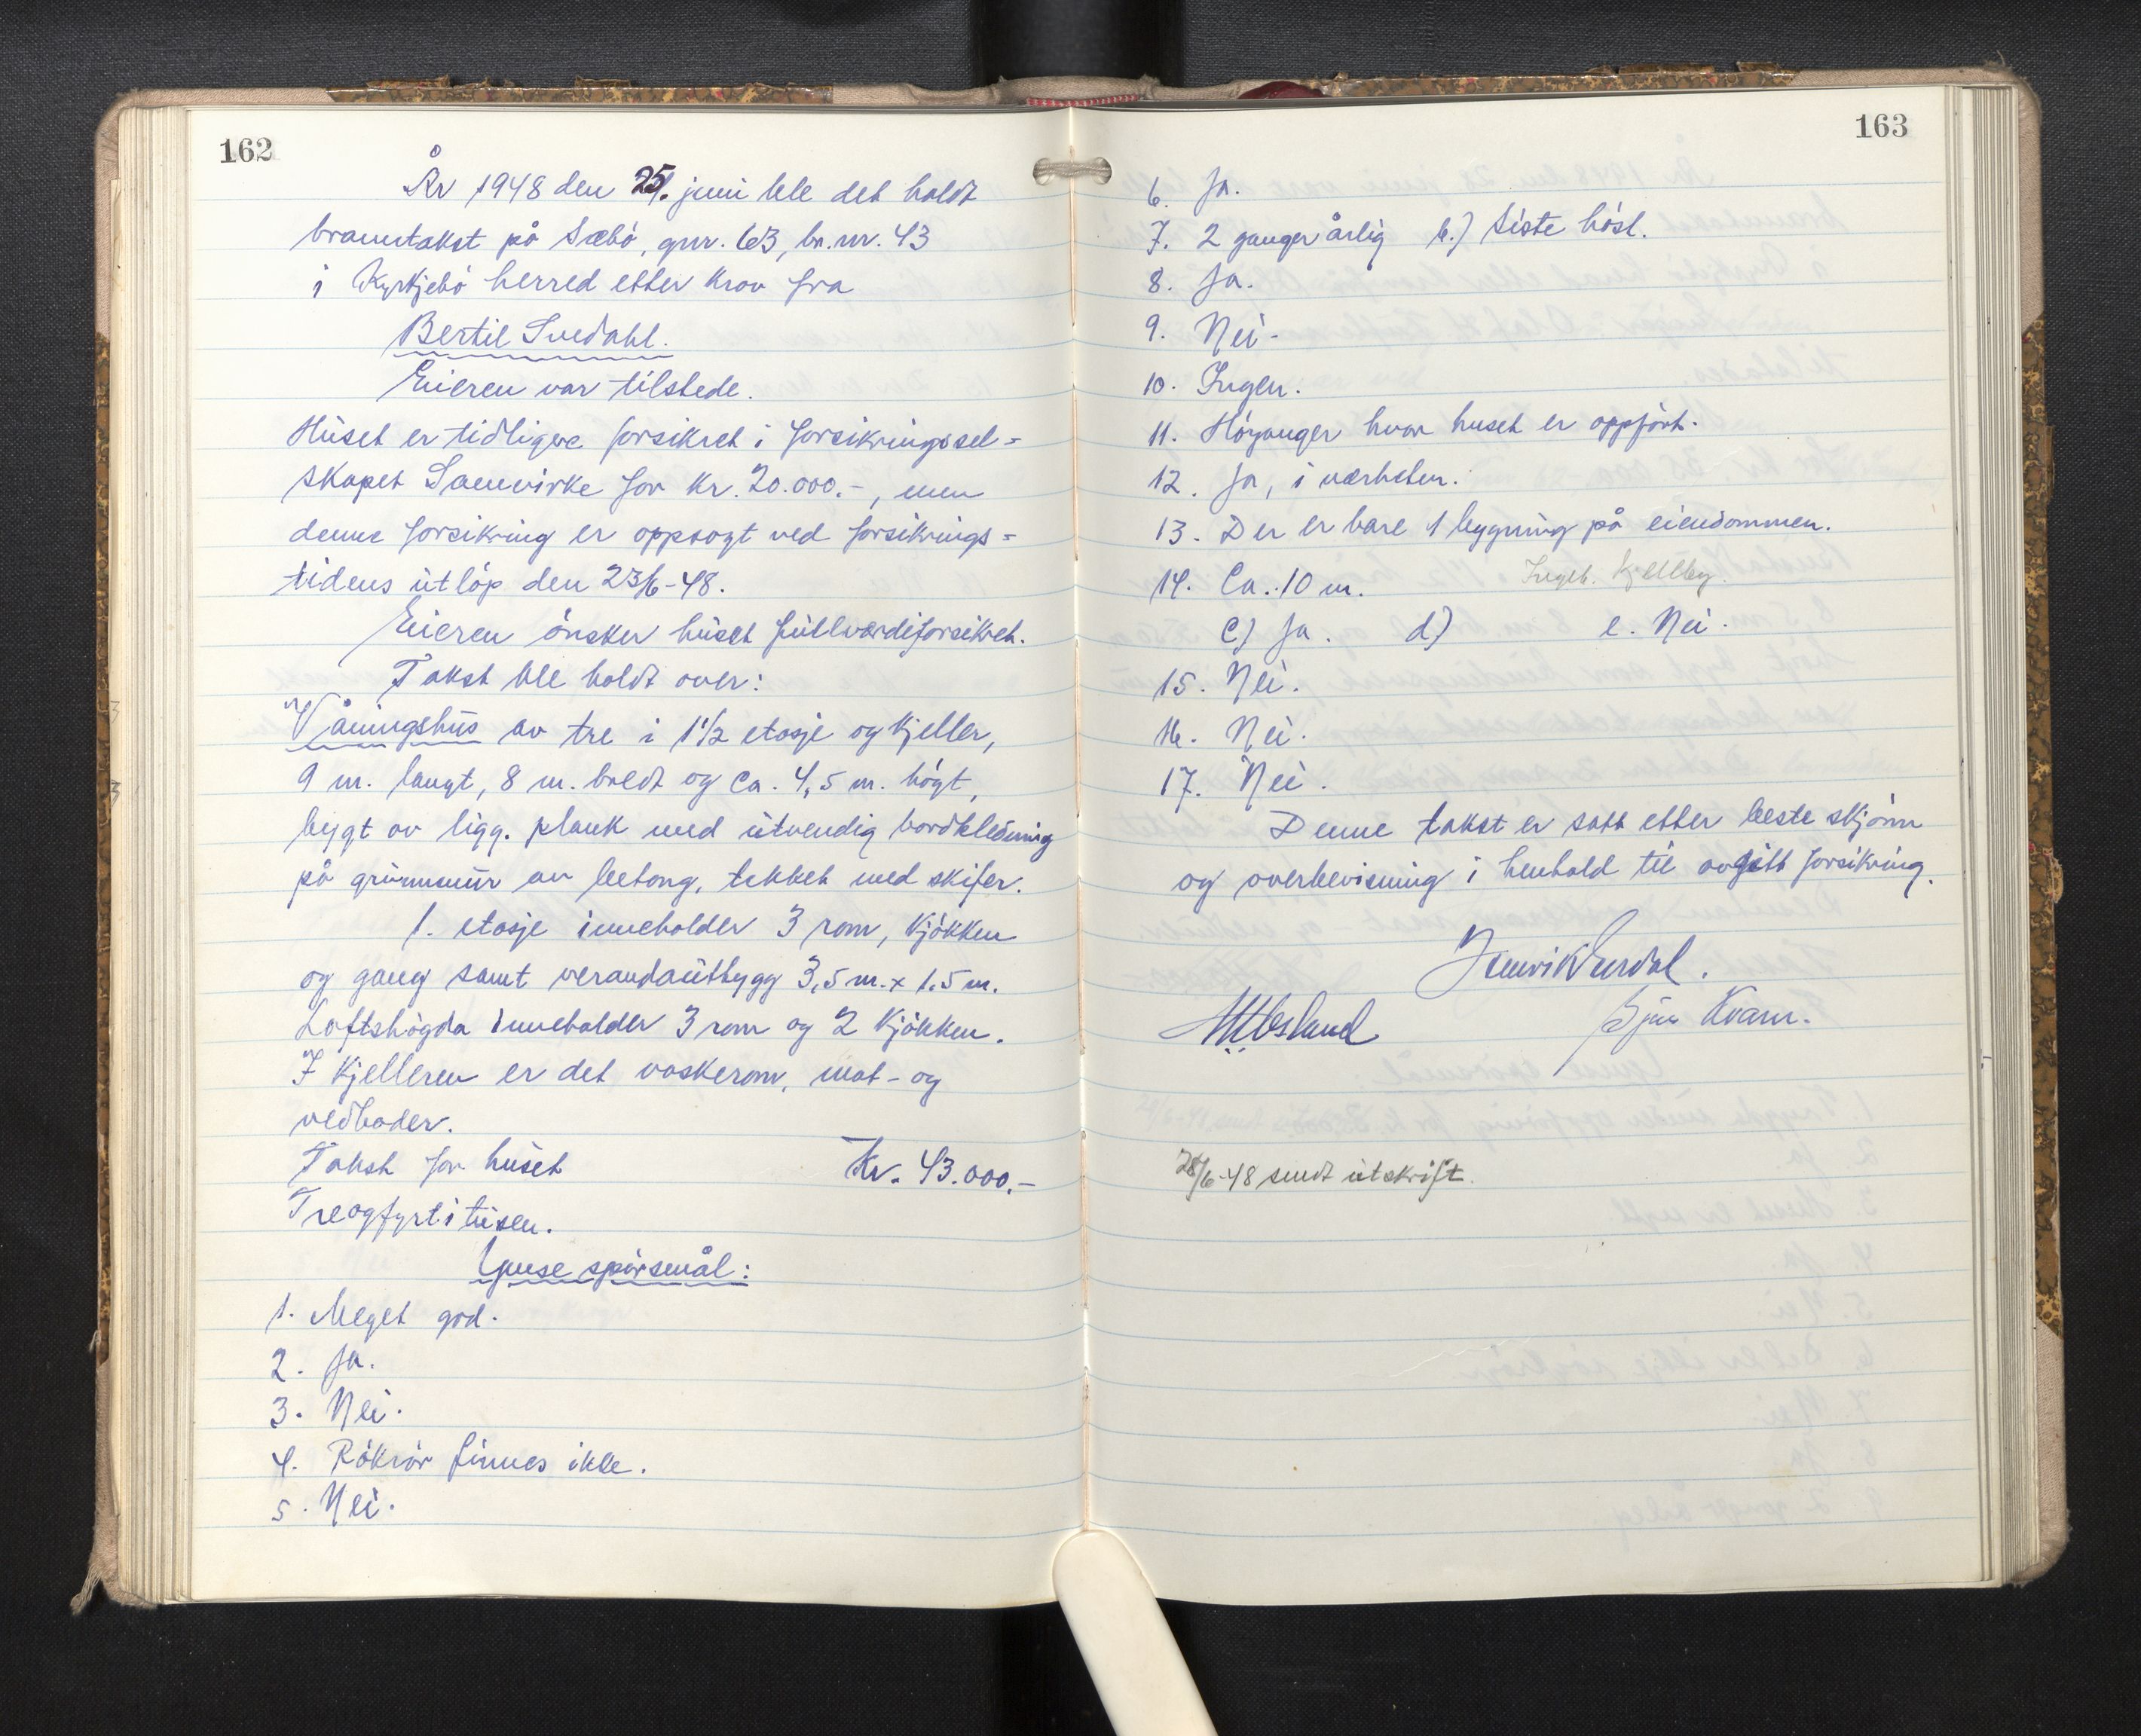 162
År 1948 den 25. juni ble det holdt
branntakst på Sæbö, gnr. 63, br.nr. 43
i Kyrkjebö herred etter krav fra
Bertil Svedahl.
Eieren var tilstede.
Huset er tidligere forsikret i forsikringssel=
skapet Samvirke for kr. 20.000.-, men
denne forsikring er oppsagt ved forsikrings=
tidens utlöp den 23/6-48.
Eieren önsker huset fullverdiforsikret.
Takst ble holdt over:
Våningshus av tre i 1 1/2 etasje og kjeller,
9 m. langt, 8 m. bredt og ca. 4,5 m. högt,
bygt av ligg. plank med utvendig bordkledning
på grunnmur av betong, tekket med skifer.
1. etasje inneholder 3 rom, kjökken
og gang samt verandautbygg 3,5 m. x 1.5 m.
Loftshögda inneholder 3 rom og 2 kjökken.
I kjelleren er det vaskerom, mat- og
vedboder.
Takst for huset Kr. 43.000.-
Treogfyrtitusen.
Ymse spörsmål:
1. Meget god.
2. Ja.
3. Nei.
4. Rökrör finnes ikke.
5. Nei.
163
6. Ja.
7. 2 ganger årlig b.) Siste höst.
8. Ja.
9. Nei.
10. Ingen.
11. Höyanger hvor huset er oppfört.
12. Ja, i nærheten.
13. Der er bare 1 bygning på eiendommen.
14. Ca. 10 m. Ingeb. Kjelleby.
c) Ja. d) e. Nei.
15. Nei.
16. Nei.
17. Nei.
Denne takst er satt etter beste skjönn
og overbevisning i henhold til avgitt forsikring.
Henrik
Osland Kvam.
28/6-48 sendt utskrift.